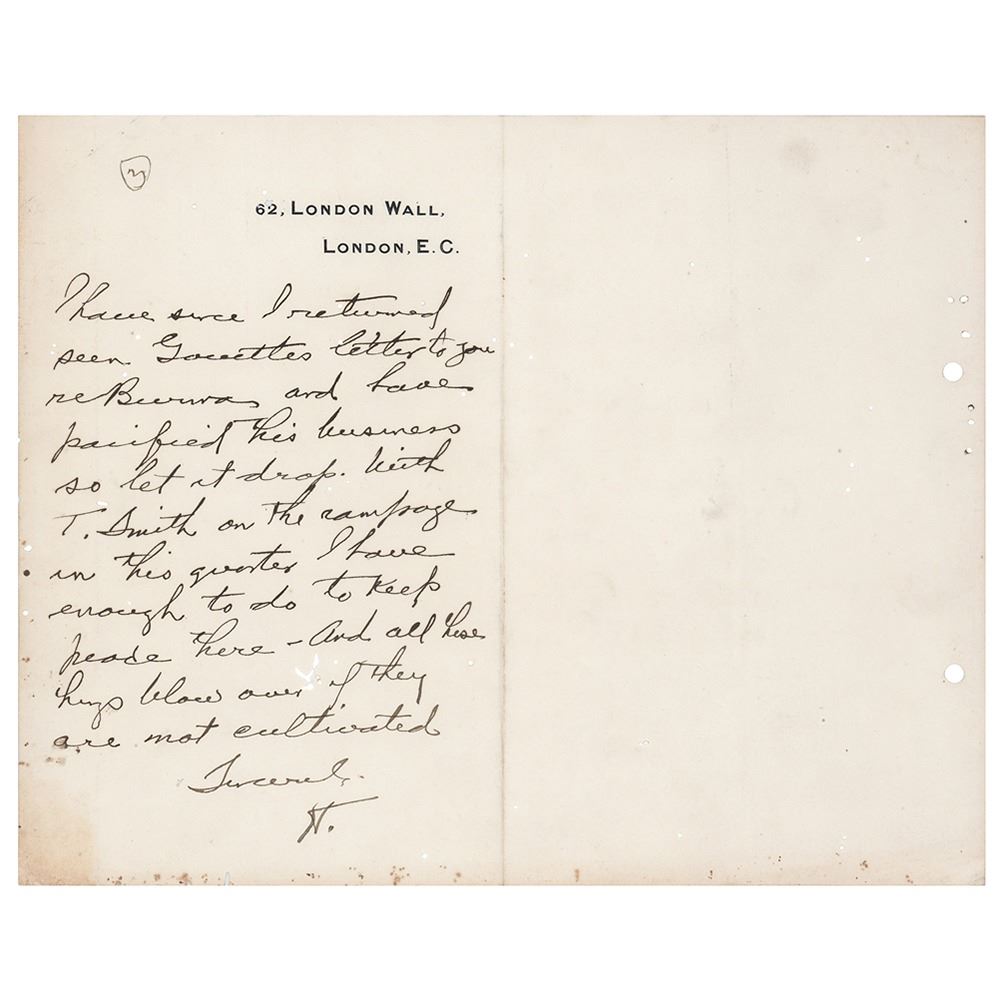 3
62, LONDON WALL,
LONDON, E.C.
I have since I returned
seen letter to you
re Burma and have
pacified his business
so let it drop. With
T. Smith on the rampage
in this quarter I have
enough to do to keep
peace here - And all these
things blow over if they
are not cultivated
Sincerely
H.